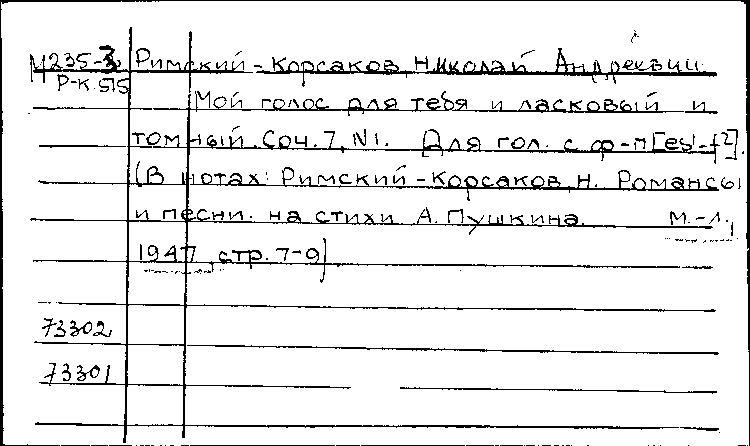 М235-3 Римский-Корсаков, Николай Андреевич
Р-К.515
Мой голос для тебя и ласковый и
томный. Соч. 7, N1. Для гол. с ф-п [es¹-f²].
(В нотах: Римский-Корсаков, Н. Романсы
и песни на стихи А. Пушкина. М.-Л.,
1947, стр. 7-9)
73302
73301